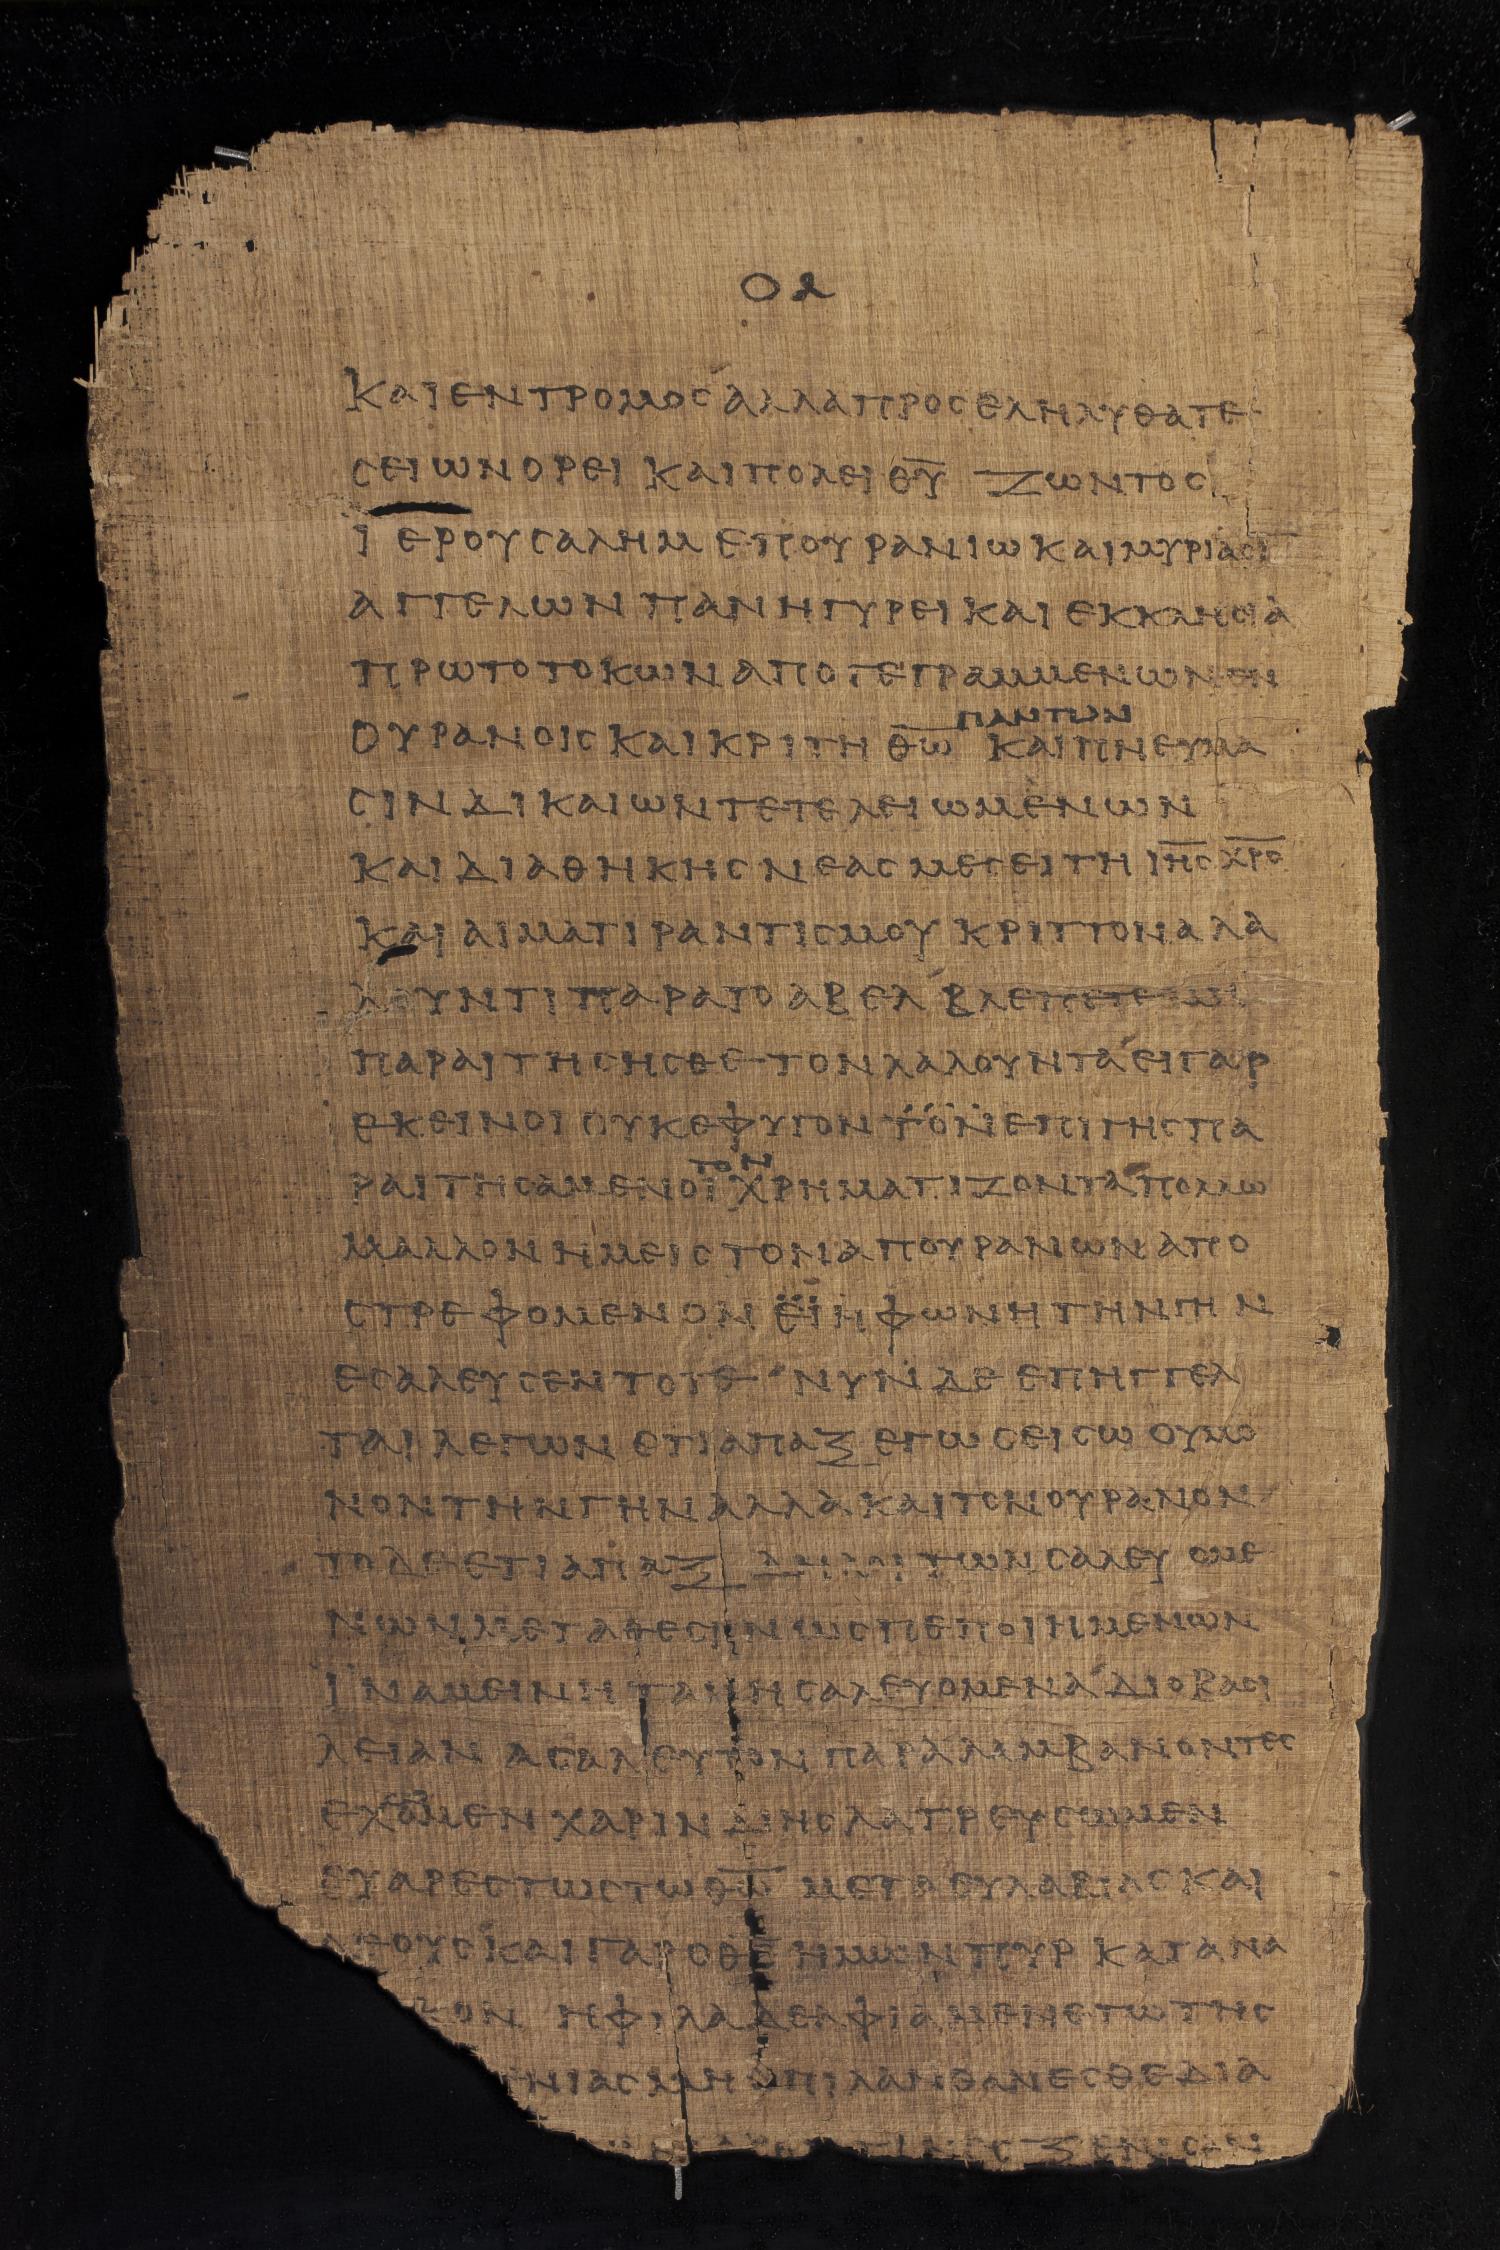 ΟΑ
ΚΑΙ ΕΝΤΡΟΜΟΣ ΑΛΛΑ ΠΡΟΣΕΛΗΛΥΘΑΤΕ
ΣΕΙΩΝ ΟΡΕΙ ΚΑΙ ΠΟΛΕΙ Θ̅Υ̅ ΖΩΝΤΟΣ
ΙΕΡΟΥΣΑΛΗΜ ΕΠΟΥΡΑΝΙΩ ΚΑΙ ΜΥΡΙΑΣΙ
ΑΓΓΕΛΩΝ ΠΑΝΗΓΥΡΕΙ ΚΑΙ ΕΚΚΛΗΣΙΑ
ΠΡΩΤΟΤΟΚΩΝ ΑΠΟΓΕΓΡΑΜΜΕΝΩΝ ΕΝ
ΠΑΝΤΩΝ
ΟΥΡΑΝΟΙΣ ΚΑΙ ΚΡΙΤΗ Θ̅Ω̅ ΚΑΙ ΠΝΕΥΜΑ
ΣΙΝ ΔΙΚΑΙΩΝ ΤΕΤΕΛΕΙΩΜΕΝΩΝ
ΚΑΙ ΔΙΑΘΗΚΗΣ ΝΕΑΣ ΜΕΣΕΙΤΗ Ι̅Η̅Σ̅ Χ̅Ρ̅Ο̅
ΚΑΙ ΑΙΜΑΤΙ ΡΑΝΤΙΣΜΟΥ ΚΡΙΤΤΟΝΑ ΛΑ
ΛΟΥΝΤΙ ΠΑΡΑ ΤΟ ΑΒΕΛ ΒΛΕΠΕΤΕ ΜΗ
ΠΑΡΑΙΤΗΣΗΣΘΕ ΤΟΝ ΛΑΛΟΥΝΤΑ ΕΙ ΓΑΡ
ΕΚΕΙΝΟΙ ΟΥΚ ΕΦΥΓΟΝ ΤΟΝ ΕΠΙ ΓΗΣ ΠΑ
ΤΟΝ
ΡΑΙΤΗΣΑΜΕΝΟΙ ΧΡΗΜΑΤΙΖΟΝΤΑ ΠΟΛΛΩ
ΜΑΛΛΟΝ ΗΜΕΙΣ ΤΟΝ ΑΠ ΟΥΡΑΝΩΝ ΑΠΟ
ΣΤΡΕΦΟΜΕΝΟΝ ΕΙ Η ΦΩΝΗ ΤΗΝ ΓΗΝ
ΕΣΑΛΕΥΣΕΝ ΤΟΤΕ ΝΥΝ ΔΕ ΕΠΗΓΓΕΛ
ΤΑΙ ΛΕΓΩΝ ΕΤΙ ΑΠΑΞ ΕΓΩ ΣΕΙΣΩ ΟΥ ΜΟ
ΝΟΝ ΤΗΝ ΓΗΝ ΑΛΛΑ ΚΑΙ ΤΟΝ ΟΥΡΑΝΟΝ
ΤΟ ΔΕ ΕΤΙ ΑΠΑΞ ΔΗΛΟΙ ΤΩΝ ΣΑΛΕΥΟΜΕ
ΝΩΝ ΜΕΤΑΘΕΣΙΝ ΩΣ ΠΕΠΟΙΗΜΕΝΩΝ
ΙΝΑ ΜΕΙΝΗ ΤΑ ΜΗ ΣΑΛΕΥΟΜΕΝΑ ΔΙΟ ΒΑΣΙ
ΛΕΙΑΝ ΑΣΑΛΕΥΤΟΝ ΠΑΡΑΛΑΜΒΑΝΟΝΤΕΣ
ΕΧΟΜΕΝ ΧΑΡΙΝ ΔΙ ΗΣ ΛΑΤΡΕΥΣΩΜΕΝ
ΕΥΑΡΕΣΤΩΣ ΤΩ Θ̅Ω̅ ΜΕΤΑ ΕΥΛΑΒΙΑΣ ΚΑΙ
ΔΕΟΥΣ ΚΑΙ ΓΑΡ Ο Θ̅Σ̅ ΗΜΩΝ ΠΥΡ ΚΑΤΑΝΑ
ΣΚΟΝ Η ΦΙΛΑΔΕΛΦΙΑ ΜΕΝΕΤΩ ΤΗΣ
ΕΝΙΑΣ ΜΗ ΕΠΙΛΑΝΘΑΝΕΣΘΕ ΔΙΑ
ΞΕΝΙΣΑΝ